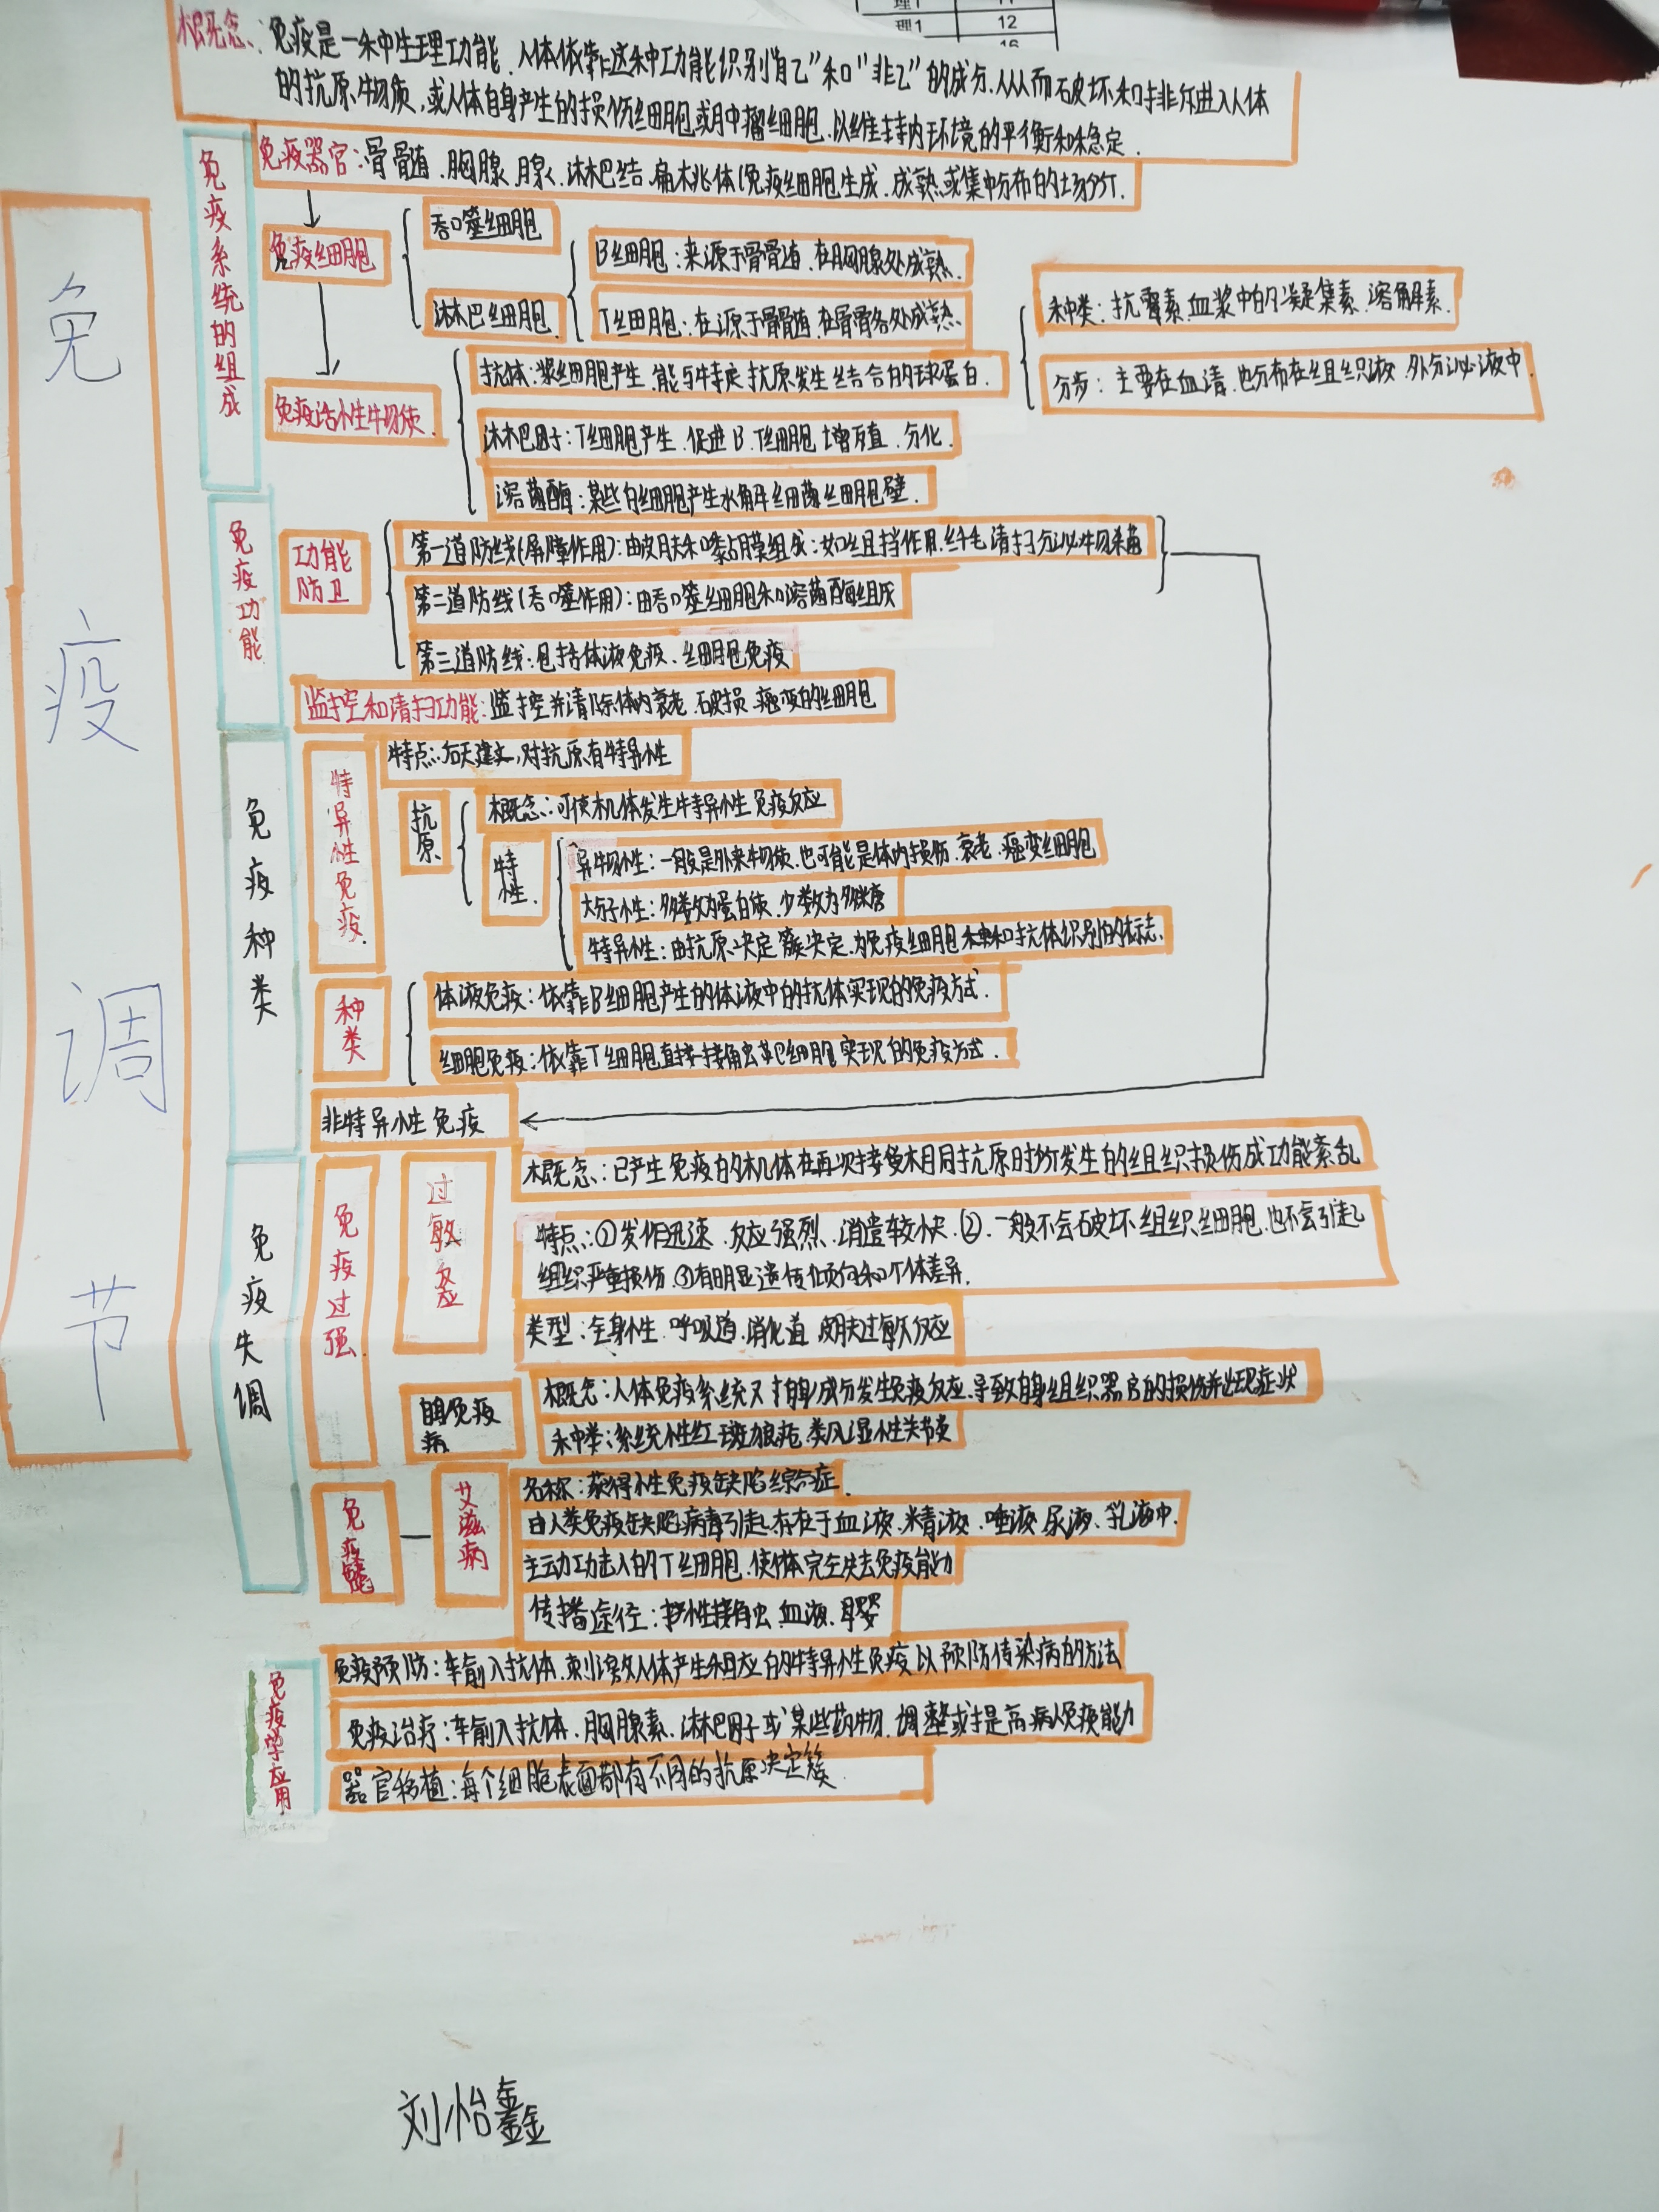 理1
理1 12
16
概念：免疫是一种生理功能，人体依靠这种功能识别"自己"和"非己"的成分，从而破坏和排斥进入人体
的抗原物质，或人体自身产生的损伤细胞或肿瘤细胞，以维持内环境的平衡和稳定．
免疫调节
免疫系统的组成
免疫器官：骨髓、胸腺、腺、淋巴结、扁桃体(免疫细胞生成、成熟或集中分布的场所．
免疫细胞
吞噬细胞
淋巴细胞
B细胞：来源于骨髓，在胸腺处成熟．
T细胞：在源于骨髓，在骨骼处成熟
免疫活性物质．
抗体：浆细胞产生，能与特定抗原发生结合的球蛋白．
种类：抗霉素、血浆中的凝集素、溶解素．
分步：主要在血清，也分布在组织液、外分泌液中．
淋巴因子：T细胞产生，促进B、T细胞增殖、分化．
溶菌酶：某些白细胞产生水解细菌细胞壁．
免疫功能
功能
防卫
第一道防线(屏障作用)：由皮肤和黏膜组成：如组挡作用，纤毛清扫，分泌物杀菌
第二道防线(吞噬作用)：由吞噬细胞和溶菌酶组成
第三道防线：包括体液免疫、细胞免疫
监控和清扫功能：监控并清除体内衰老、破损、癌变的细胞
免疫种类
特异性免疫．
特点：后天建立，对抗原有特异性
抗原
概念：可使机体发生特异性免疫反应
特性．
异物性：一般是外来物质，也可能是体内损伤、衰老、癌变细胞
大分子性：多数为蛋白质，少数为多糖
特异性：由抗原决定簇决定，为免疫细胞和抗体识别的标志．
种类
体液免疫：依靠B细胞产生的体液中的抗体实现的免疫方式．
细胞免疫：依靠T细胞直接接触靶细胞实现的免疫方式．
非特异性免疫
免疫失调
免疫过强．
过敏反应
概念：已产生免疫的机体在再次接受相同抗原时所发生的组织损伤成功能紊乱
特点：①发作迅速、反应强烈、消遣较快．②．一般不会破坏组织细胞，也不会引起
组织严重损伤．③有明显遗传倾向和个体差异．
类型：全身性、呼吸道、消化道、皮肤过敏反应
自身免疫
病．
概念：人体免疫系统对自身成分发生免疫反应，导致自身组织器官的损伤并出现症状
种类：系统性红斑狼疮、类风湿性关节炎
艾滋病
名称：获得性免疫缺陷综合症．
由人类免疫缺陷病毒引起，存在于血液、精液、唾液、尿液、乳液中．
主动功击入的T细胞，使人体完全失去免疫能力
传播途径：性接触、血液、母婴
免疫学应用
免疫预防：车前入抗体，刺激人体产生相应的特异性免疫以预防传染病的方法
免疫治疗：车前入抗体、胸腺素、淋巴因子或某些药物，调整或提高病人免疫能力
器官移植：每个细胞表面都有不同的抗原决定簇．
刘怡鑫